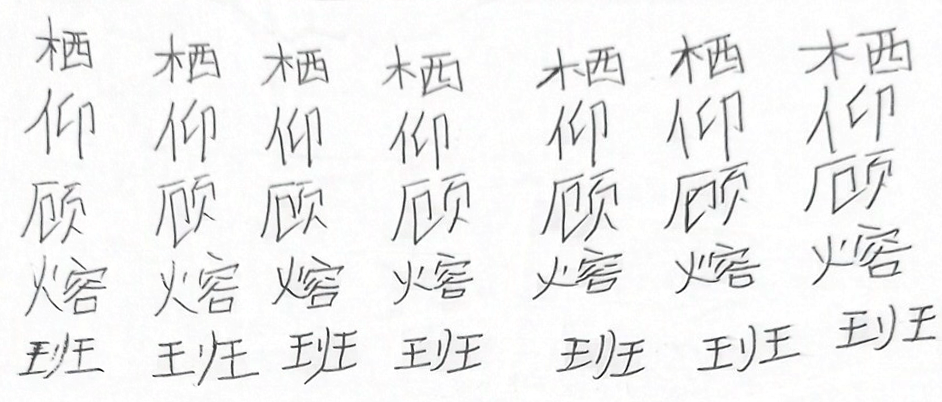 栖 栖 栖 栖 栖 栖 栖
仰 仰 仰 仰 仰 仰 仰
顾 顾 顾 顾 顾 顾 顾
熔 熔 熔 熔 熔 熔 熔
班 班 班 班 班 班 班